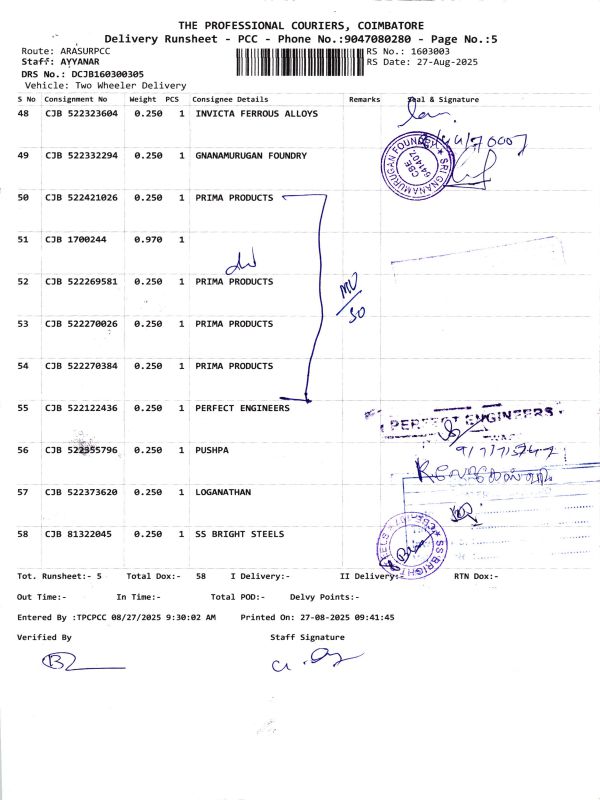 THE PROFESSIONAL COURIERS, COIMBATORE
Delivery Runsheet - PCC - Phone No.:9047080280 - Page No.:5
Route: ARASURPCC RS No.: 1603003
Staff: AYYANAR RS Date: 27-Aug-2025
DRS No.: DCJB160300305
Vehicle: Two Wheeler Delivery
S No Consignment No Weight PCS Consignee Details Remarks Seal & Signature
48 CJB 522323604 0.250 1 INVICTA FERROUS ALLOYS
49 CJB 522332294 0.250 1 GNANAMURUGAN FOUNDRY
SRI GNANAMURUGAN FOUNDRY
CBE
641407
50 CJB 522421026 0.250 1 PRIMA PRODUCTS
51 CJB 1700244 0.970 1
52 CJB 522269581 0.250 1 PRIMA PRODUCTS
53 CJB 522270026 0.250 1 PRIMA PRODUCTS
54 CJB 522270384 0.250 1 PRIMA PRODUCTS
55 CJB 522122436 0.250 1 PERFECT ENGINEERS
PERFECT ENGINEERS
56 CJB 522355796 0.250 1 PUSHPA
57 CJB 522373620 0.250 1 LOGANATHAN
58 CJB 81322045 0.250 1 SS BRIGHT STEELS
SS BRIGHT STEELS
Tot. Runsheet:- 5 Total Dox:- 58 I Delivery:- II Delivery:- RTN Dox:-
Out Time:- In Time:- Total POD:- Delvy Points:-
Entered By :TPCPCC 08/27/2025 9:30:02 AM Printed On: 27-08-2025 09:41:45
Verified By Staff Signature